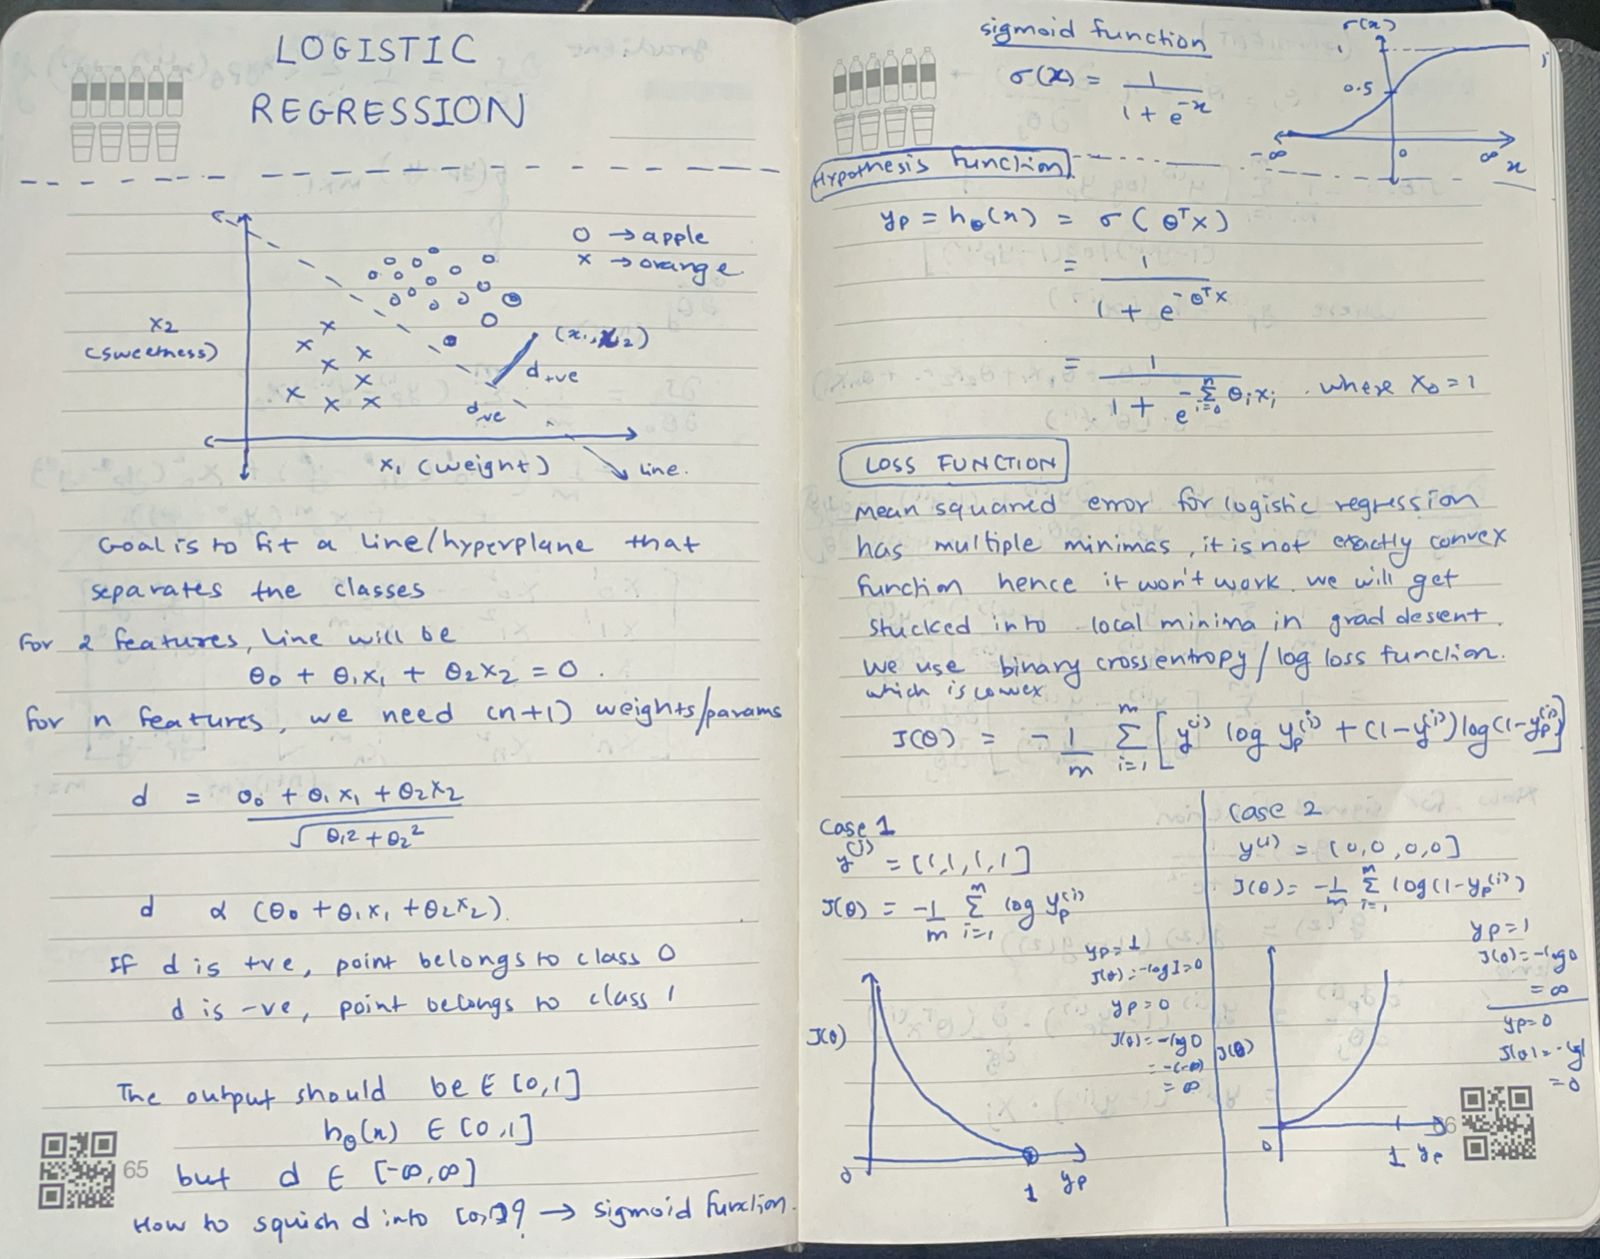 LOGISTIC
REGRESSION
O → apple
x → orange
x2
(sweetness)
(x1, x2)
d +ve
d -ve
x1 (weight)
line.
Goal is to fit a line/hyperplane that
separates the classes
For 2 features, line will be
θ0 + θ1x1 + θ2x2 = 0.
for n features, we need (n+1) weights/params
d = θ0 + θ1x1 + θ2x2 / √θ1² + θ2²
d ∝ (θ0 + θ1x1 + θ2x2).
If d is +ve, point belongs to class 0
d is -ve, point belongs to class 1
The output should be ∈ [0,1]
hθ(x) ∈ [0,1]
but d ∈ [-∞,∞]
How to squish d into [0,1]? → sigmoid function.
65
sigmoid function
σ(x) = 1 / 1 + e^-x
σ(x)
1
0.5
-∞ 0 ∞ x
Hypothesis function
yp = hθ(x) = σ(θ^T x)
= 1 / 1 + e^-θ^T x
= 1 / 1 + e^-Σ_{i=0}^{n} θi xi . where x0 = 1
LOSS FUNCTION
mean squared error for logistic regression
has multiple minimas, it is not exactly convex
function hence it won't work. we will get
stucked into local minima in grad descent.
we use binary cross entropy / log loss function.
which is convex
J(θ) = - 1/m Σ_{i=1}^{m} [y^(i) log yp^(i) + (1-y^(i)) log(1-yp^(i))]
Case 1
y^(i) = [1,1,1,1]
J(θ) = -1/m Σ_{i=1}^{m} log yp^(i)
yp=1
J(θ) = -log1=0
yp=0
J(θ) = -log0
= -(-∞)
= ∞
J(θ)
0
1 yp
Case 2
y^(i) = [0,0,0,0]
J(θ) = -1/m Σ_{i=1}^{m} log(1-yp^(i))
yp=1
J(θ) = -log0
= ∞
yp=0
J(θ) = -log1
= 0
J(θ)
0
1 yp
66